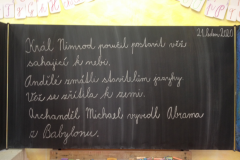 21. leden 2020
Král Nimrod poručil postavit věž
sahající k nebi.
Andělé zmátli stavitelům jazyky.
Věž se zřítila k zemi.
Archanděl Michael vyvedl Abrama
z Babylonu.